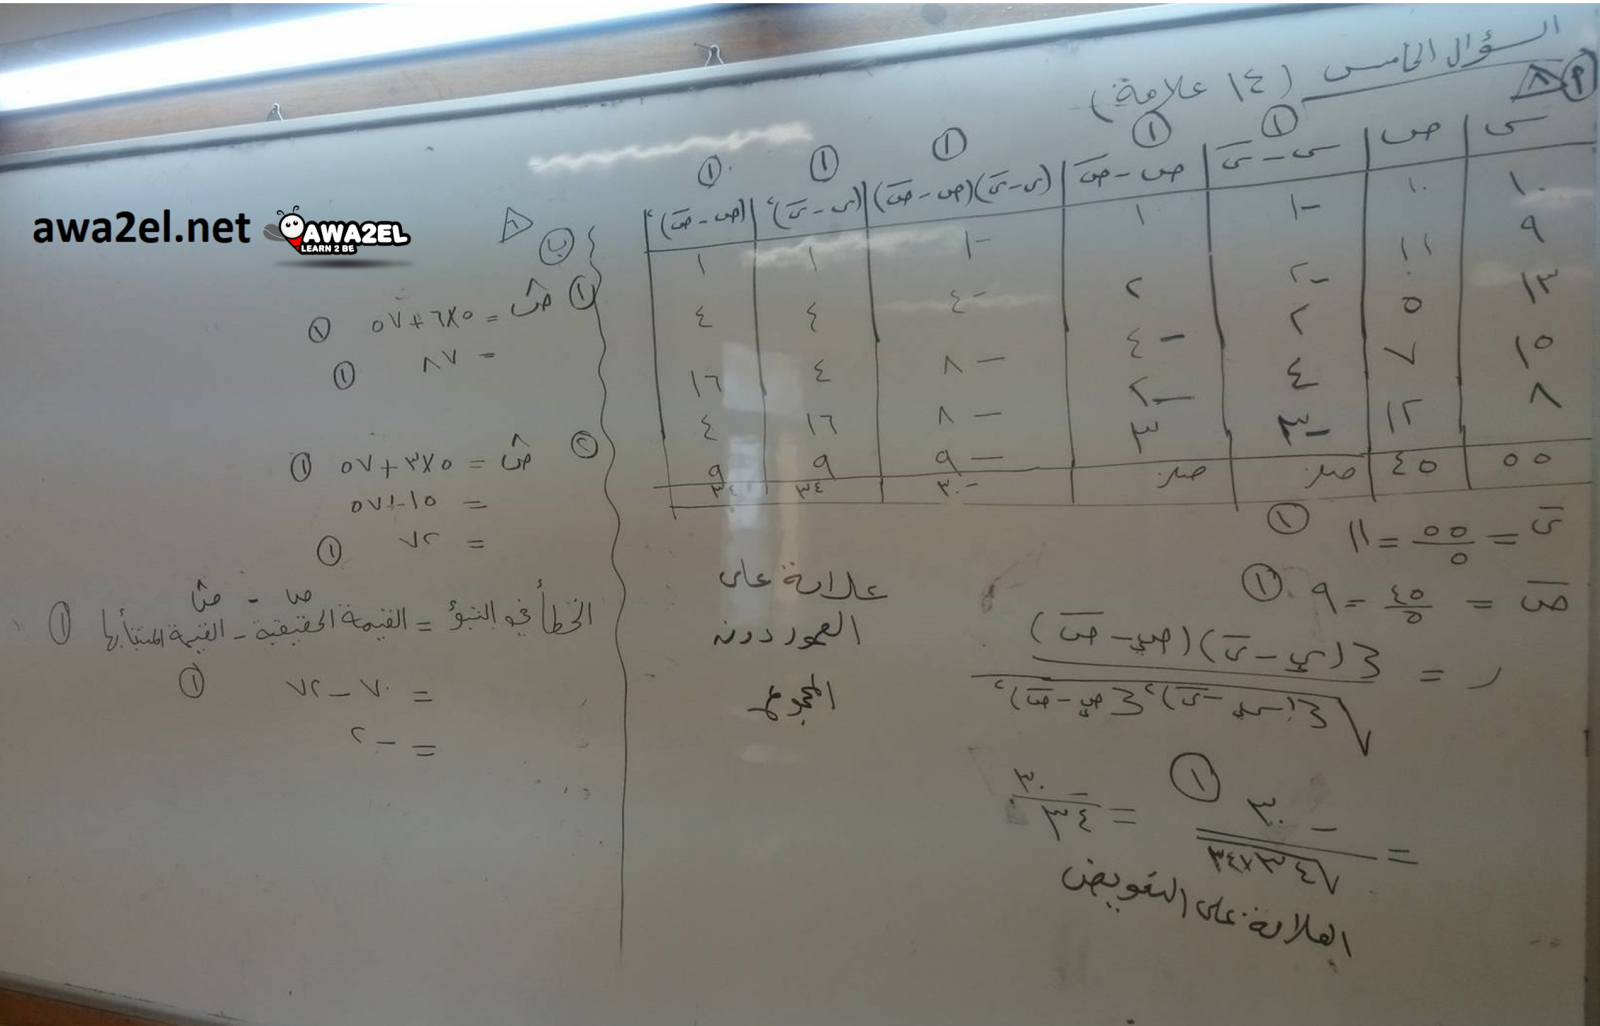 السؤال الخامس (١٤ علامة)
٢ ٨
١ ١ ١ ١ ١
س | ص | س - س̄ | ص - ص̄ | (س - س̄)(ص - ص̄) | (س - س̄)² | (ص - ص̄)²
١٠ | ١٠ | -١ | ١ | -١ | ١ | ١
٩ | ١١ | -٢ | ٢ | -٤ | ٤ | ٤
١٣ | ٥ | ٢ | -٤ | -٨ | ٤ | ١٦
١٥ | ٧ | ٤ | -٢ | -٨ | ١٦ | ٤
٨ | ١٢ | -٣ | ٣ | -٩ | ٩ | ٩
٥٥ | ٤٥ | صفر | صفر | -٣٠ | ٣٤ | ٣٤
س̄ = ٥٥/٥ = ١١ ١
ص̄ = ٤٥/٥ = ٩ ١
ر = Σ(سي - س̄)(صي - ص̄) / √Σ(سي - س̄)² Σ(صي - ص̄)²
= -٣٠ / √٣٤×٣٤ = -٣٠/٣٤ ١
العلامة على التعويض
علامة على
العمود دون
المجموع
ب ٦
١ صَ = ٥×٦+٥٧ ٢
= ٨٧ ١
٢ صَ = ٥×٣+٥٧ ١
= ١٥+٥٧
= ٧٢ ١
ص - صَ
الخطأ في التنبؤ = القيمة الحقيقية - القيمة المتنبأ بها ١
= ٧٠ - ٧٢ ١
= -٢
awa2el.net
AWA2EL
LEARN 2 BE